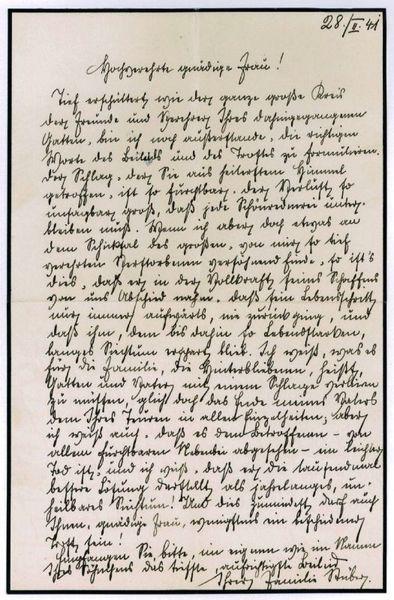 28./II. 41
Hochverehrte gnädige Frau!
Tief erschüttert wie der ganze große Kreis
der Freunde und Verehrer Ihres dahingegangenen
Gatten, bin ich noch außerstande, die richtigen
Worte des Beileids und des Trostes zu formulieren.
Der Schlag, der Sie aus heiterstem Himmel
getroffen, ist so furchtbar, der Verlust so
unsagbar groß, daß jede Schönrednerei unter-
bleiben muß. Wenn ich aber doch etwas an
dem Schicksal des großen, von mir so tief
verehrten Verstorbenen versöhnend finde, so ist's
dies, daß er in der Vollkraft seines Schaffens
von uns Abschied nahm, daß sein Lebensschritt
nur immer aufwärts, nie zurück ging, und
daß ihm, dem bis dahin so Lebensstarken,
langes Siechtum erspart blieb. Ich weiß, was es
für die Familie, die Hinterbliebenen, heißt,
Gatten und Vater mit einem Schlage verlieren
zu müssen, glich doch das Ende meines Vaters
dem Ihres Teuren in allen Einzelheiten; aber
ich weiß auch, daß es dem Betroffenen – von
allem furchtbaren Nebenbei abgesehen – ein leichter
Tod ist, und ich weiß, daß er die tausendmal
bessere Lösung darstellt als jahrelanges, un-
heilbares Siechtum! Und dies zumindest darf auch
Ihnen, gnädige Frau, wenigstens ein bescheidener
Trost sein!
Empfangen Sie bitte, im eignen wie im Namen
das tiefste, aufrichtigste Beileid
Ihrer Familie